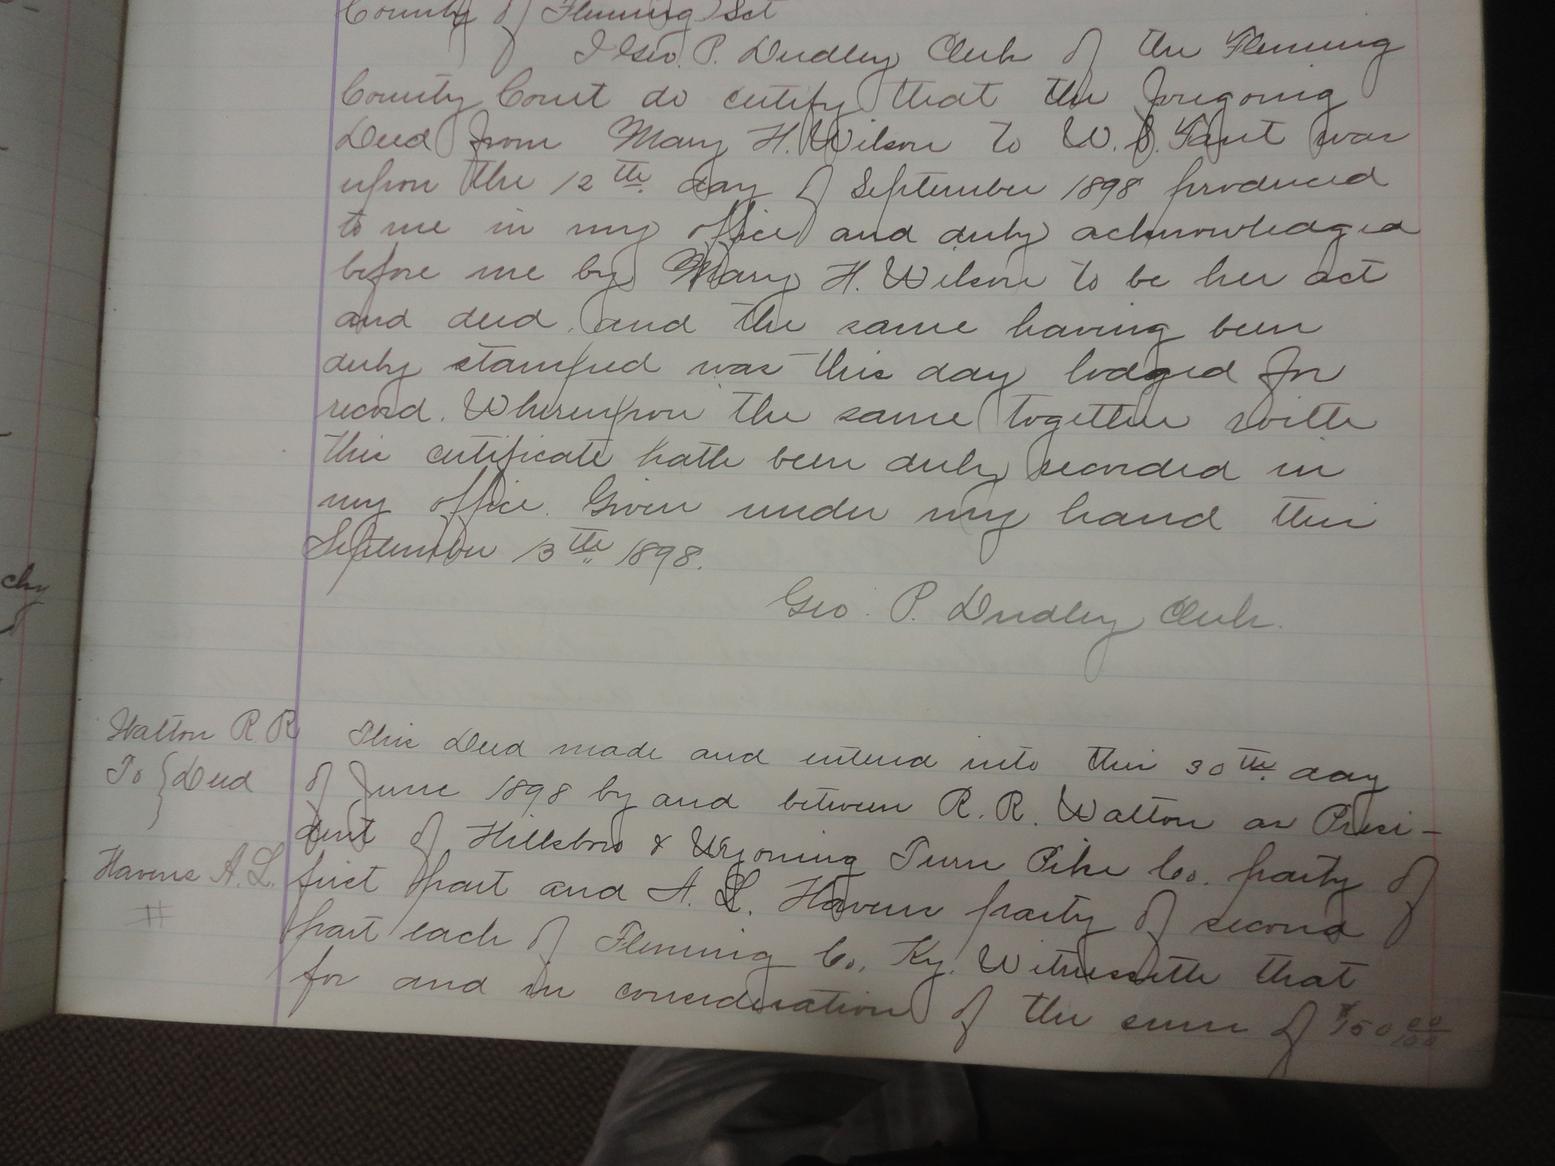 County of Fleming Sct
I Geo. P. Dudley Clerk of the Fleming
County Court do certify that the foregoing
Deed from Mary H. Wilson to W. S. Gant was
upon the 12th day of September 1898 produced
to me in my office and duly acknowledged
before me by Mary H. Wilson to be her act
and deed, and the same having been
duly stamped was this day lodged for
record. Whereupon the same together with
this certificate hath been duly recorded in
my office. Given under my hand this
September 13th 1898.
Geo. P. Dudley Clerk.
Walton R R
To } Deed
Havens A. L.
#
This Deed made and entered into this 30th day
of June 1898 by and between R. R. Walton as Presi-
dent of Hillsboro & Wyoming Turn Pike Co. party of
first part and A. L. Havens party of second
part each of Fleming Co. Ky. Witnesseth that
for and in consideration of the sum of $150 00/100